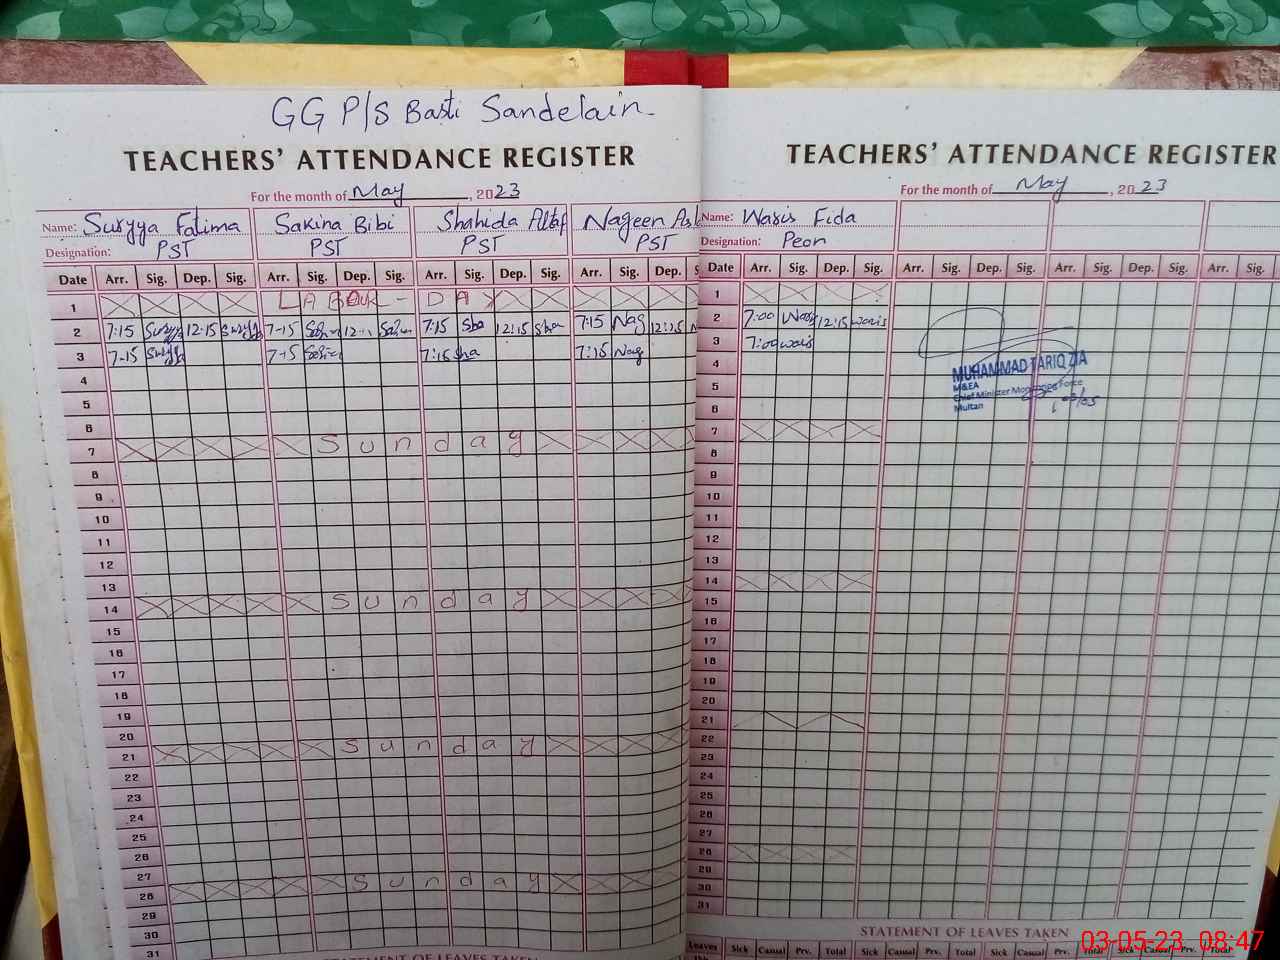 GG P/S Basti Sandelain
TEACHERS' ATTENDANCE REGISTER
For the month of May, 2023
Name: Suryya Fatima Sakina Bibi Shahida Altaf Nageen
Designation: PST PST PST PST
Date Arr. Sig. Dep. Sig. Arr. Sig. Dep. Sig. Arr. Sig. Dep. Sig. Arr. Sig. Dep.
1 LABOUR - DAY
2 7:15 12:15 7-15 7:15 Sha 12:15 Sha 7:15 Nag 12:15
3 7-15 7-15 7:15 Sha 7:15 Nag
4
5
6
7 Sunday
8
9
10
11
12
13
14 Sunday
15
16
17
18
19
20
21 Sunday
22
23
24
25
26
27
28 Sunday
29
30
31
STATEMENT OF LEAVES TAKEN
TEACHERS' ATTENDANCE REGISTER
For the month of May, 2023
Name: Waris Fida
Designation: Peon
Date Arr. Sig. Dep. Sig. Arr. Sig. Dep. Sig. Arr. Sig. Dep. Sig. Arr. Sig.
1
2 7:00 Waris 12:15 waris
3 7:00 waris
4
5
6
7
8
9
10
11
12
13
14
15
16
17
18
19
20
21
22
23
24
25
26
27
28
29
30
31
MUHAMMAD TARIQ ZIA
M&EA
Chief Minister Monitoring Force
Multan
STATEMENT OF LEAVES TAKEN
Leaves Sick Casual Prv. Total Sick Casual Prv. Total Sick Casual Prv. Total Sick Casual Prv. Total
03-05-23 08:47